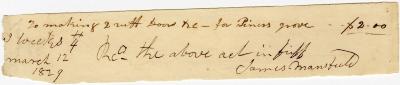 To making 2 ruff Doors &c – for Piners grove – $2.00
march 12 Rcd the above act in full
1829 James Mansfield